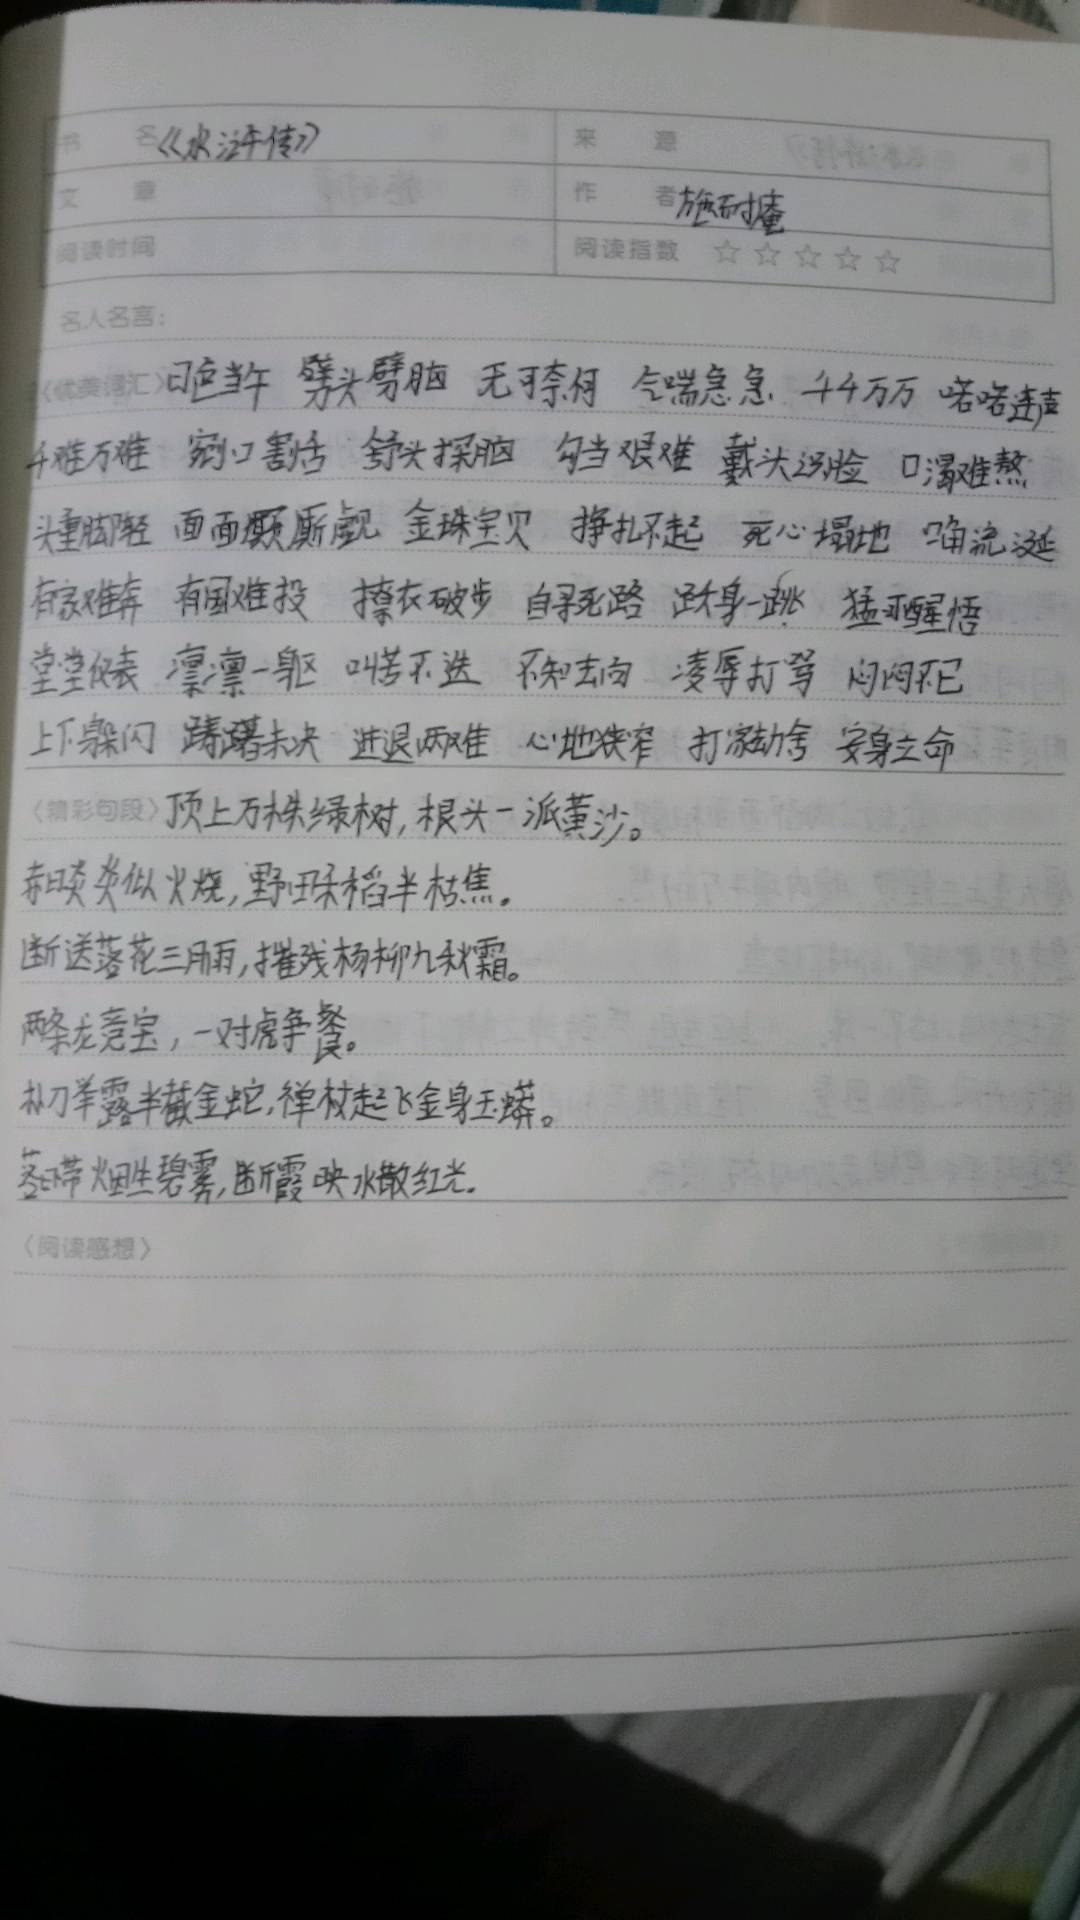 书 名 《水浒传》 来 源
文 章 作 者 施耐庵
阅读时间 阅读指数 ☆☆☆☆☆
名人名言：
〈优美词汇〉日色当午 劈头劈脑 无可奈何 气喘急急 千千万万 喏喏连声
千难万难 剜口割舌 舒头探脑 勾当艰难 戴头识脸 口渴难熬
头重脚轻 面面厮觑 金珠宝贝 挣扎不起 死心塌地 口角流涎
有家难奔 有国难投 撩衣破步 自寻死路 跃身一跳 猛可醒悟
堂堂仪表 凛凛一躯 叫苦不迭 不知去向 凌辱打骂 闷闷不已
上下躲闪 踌躇未决 进退两难 心地狭窄 打家劫舍 安身立命
〈精彩句段〉顶上万株绿树，根头一派黄沙。
赤日炎炎似火烧，野田禾稻半枯焦。
断送落花三月雨，摧残杨柳九秋霜。
两条龙竞宝，一对虎争餐。
朴刀举露半截金蛇，禅杖起飞全身玉蟒。
落日带烟生碧雾，断霞映水散红光。
〈阅读感想〉